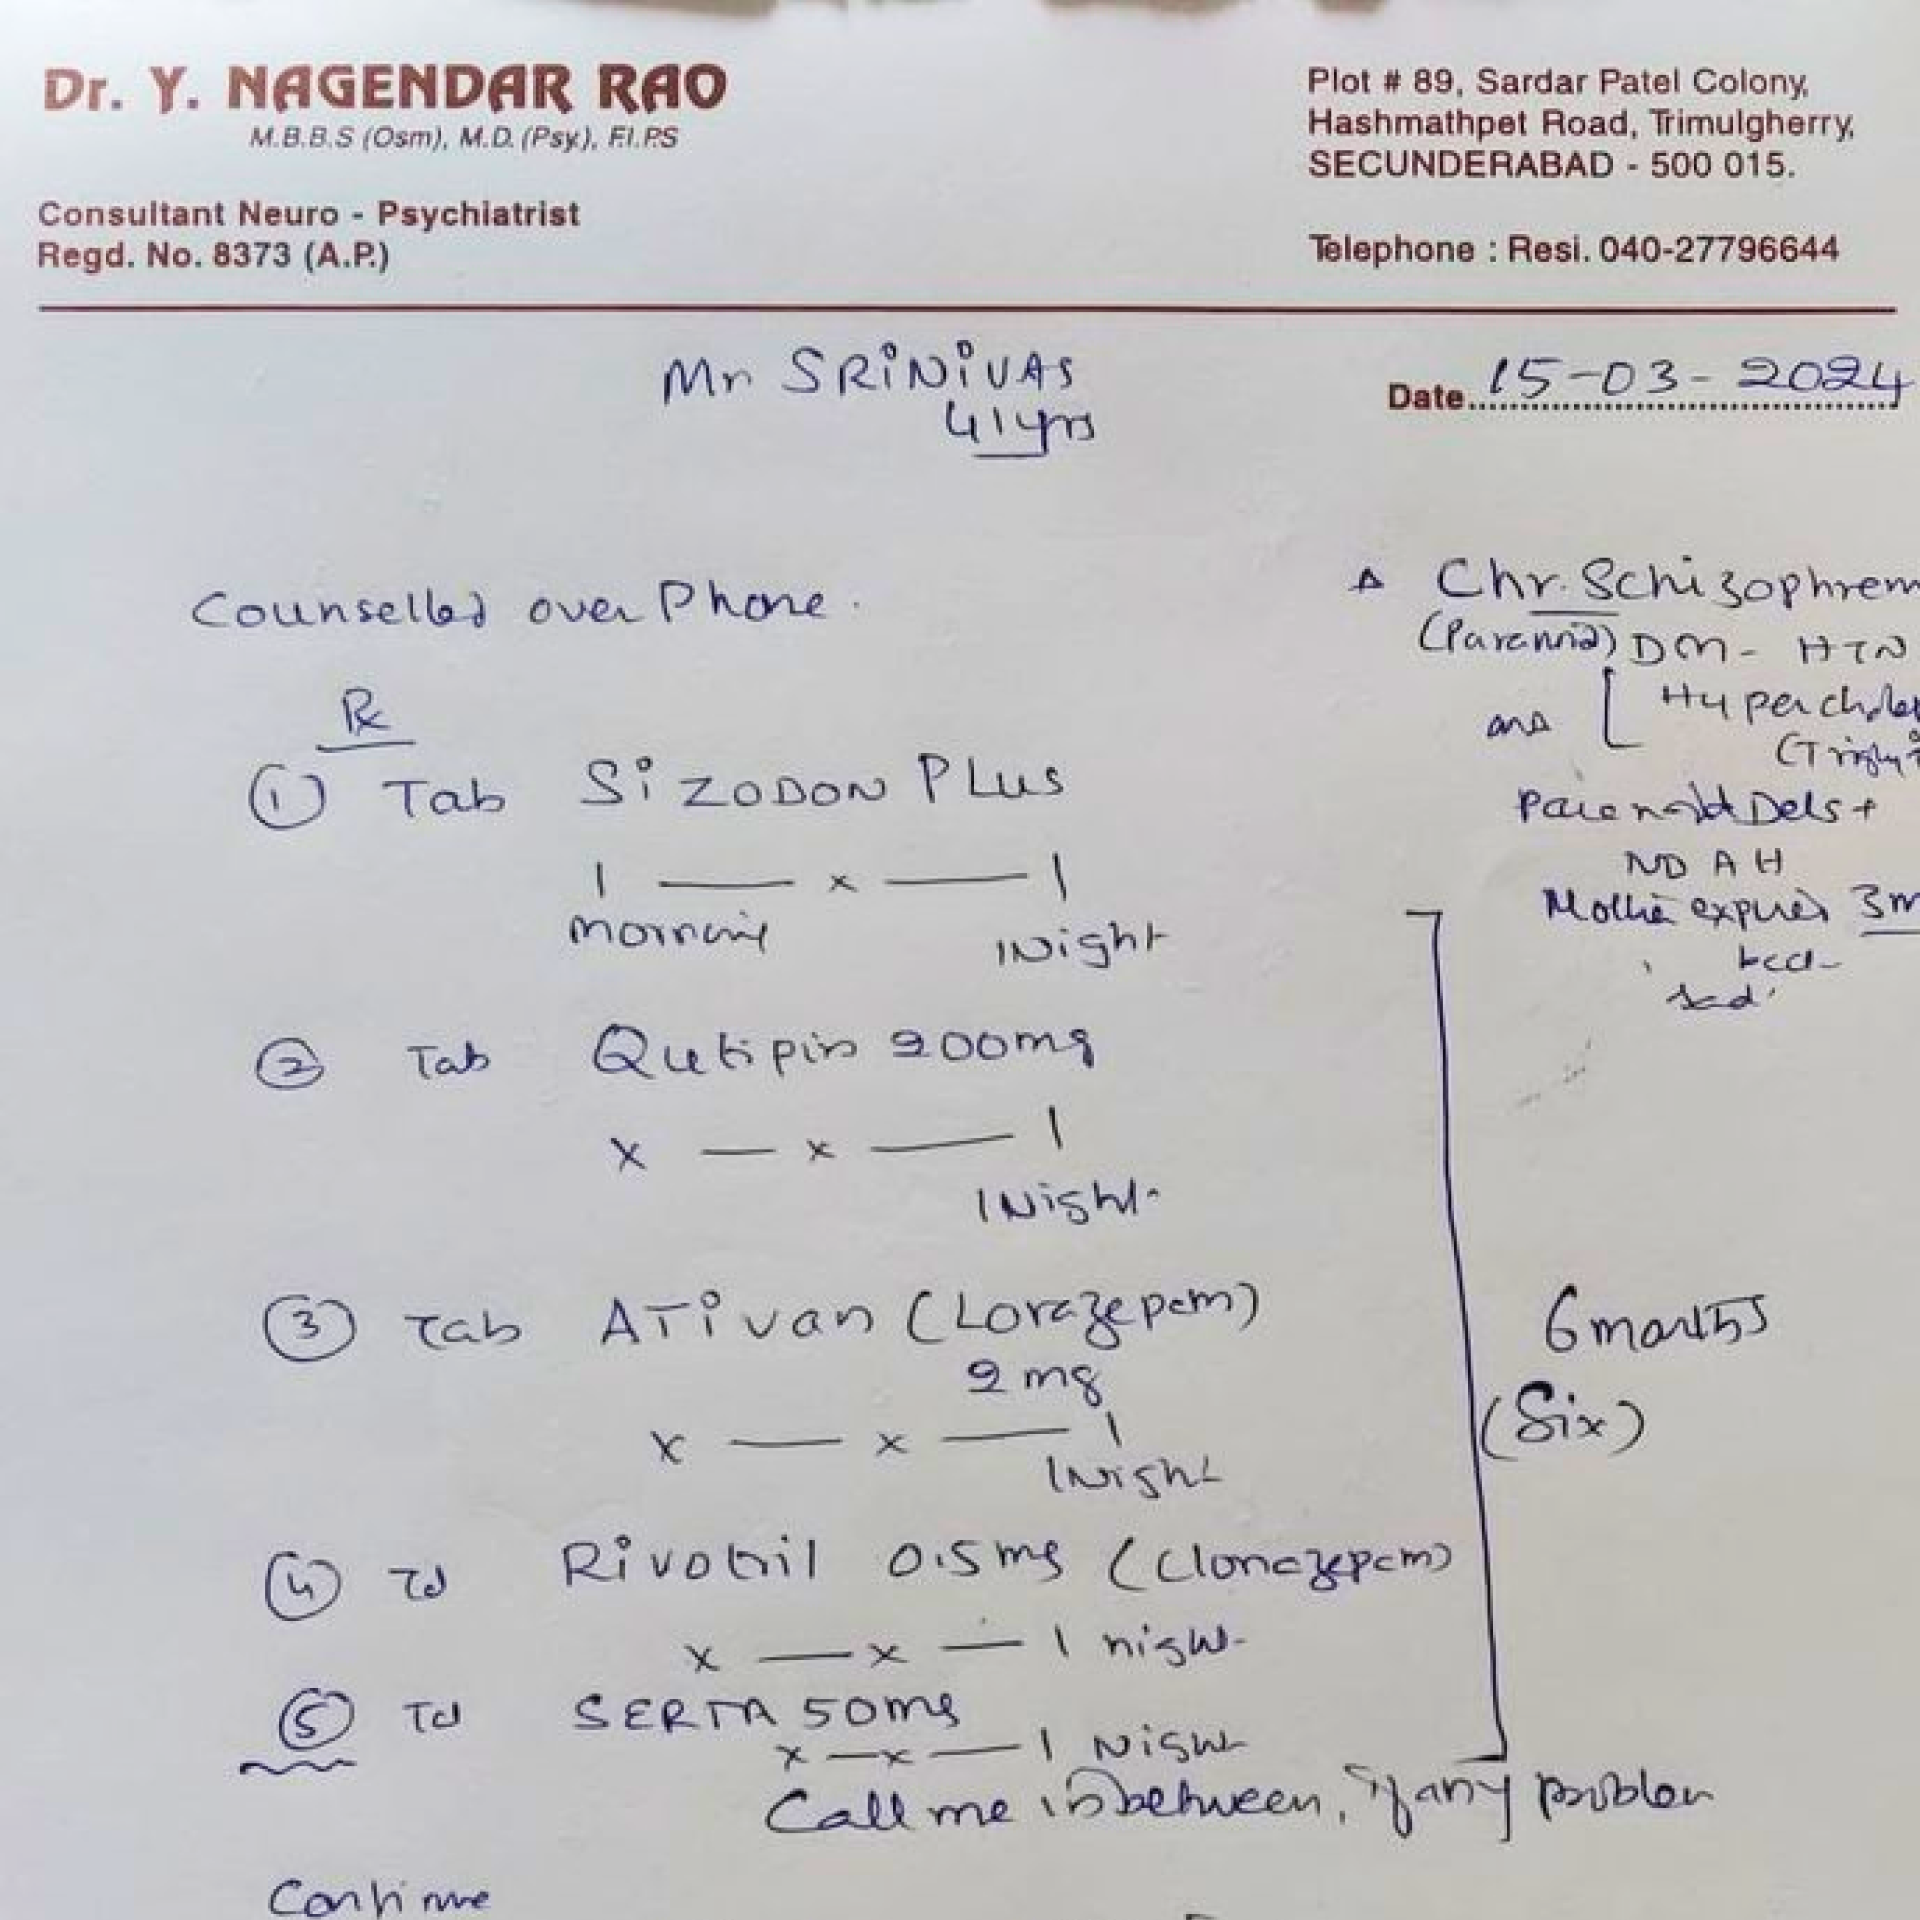 Dr. Y. NAGENDAR RAO
M.B.B.S (Osm), M.D. (Psy.), F.I.P.S
Consultant Neuro - Psychiatrist
Regd. No. 8373 (A.P.)
Plot # 89, Sardar Patel Colony,
Hashmathpet Road, Trimulgherry,
SECUNDERABAD - 500 015.
Telephone : Resi. 040-27796644
Mr SRiNiVAS
41yrs
Date 15-03-2024
Counselled over Phone.
Chr. Schizophren
(Paranoid) DM - HTN
and [ Hyperchol
Paranoid Dels +
NO AH
Mother expired 3m
sad
Rx
① Tab SiZODON PLus
1 — x — 1
morning Night
② Tab Qutipin 200mg
x — x — 1
1 Night
③ Tab ATivan (Lorazepam)
2mg
x — x — 1
1 Night
6 months
(Six)
④ Td Rivotril 0.5mg (Clonazepam)
x — x — 1 night
⑤ Td SERTA 50mg
x — x — 1 Night
Call me in between, if any problem
Continue